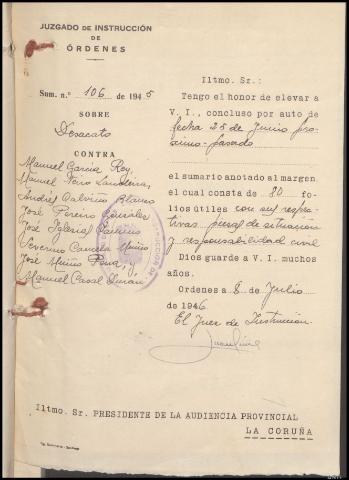 JUZGADO DE INSTRUCCIÓN
DE
ÓRDENES
Sum. n.º 106 de 1945
SOBRE
Desacato
CONTRA
Manuel Garcia Rey
Manuel
Andrés Calviño Blanco
José Pereiro
José Iglesias
Severino Candela Muiño
José Muiño Pena, y
Manuel Casal Durán
Iltmo. Sr.:
Tengo el honor de elevar a
V. I., concluso por auto de
fecha 25 de Junio pró-
ximo-pasado
el sumario anotado al margen,
el cual consta de 80 fo-
lios útiles con sus respec-
tivas piezas de situacion
y responsabilidad civil
Dios guarde a V. I. muchos
años.
Ordenes a 8 de Julio
de 1946
El Juez de Instrucción.
Iltmo. Sr. PRESIDENTE DE LA AUDIENCIA PROVINCIAL
LA CORUÑA